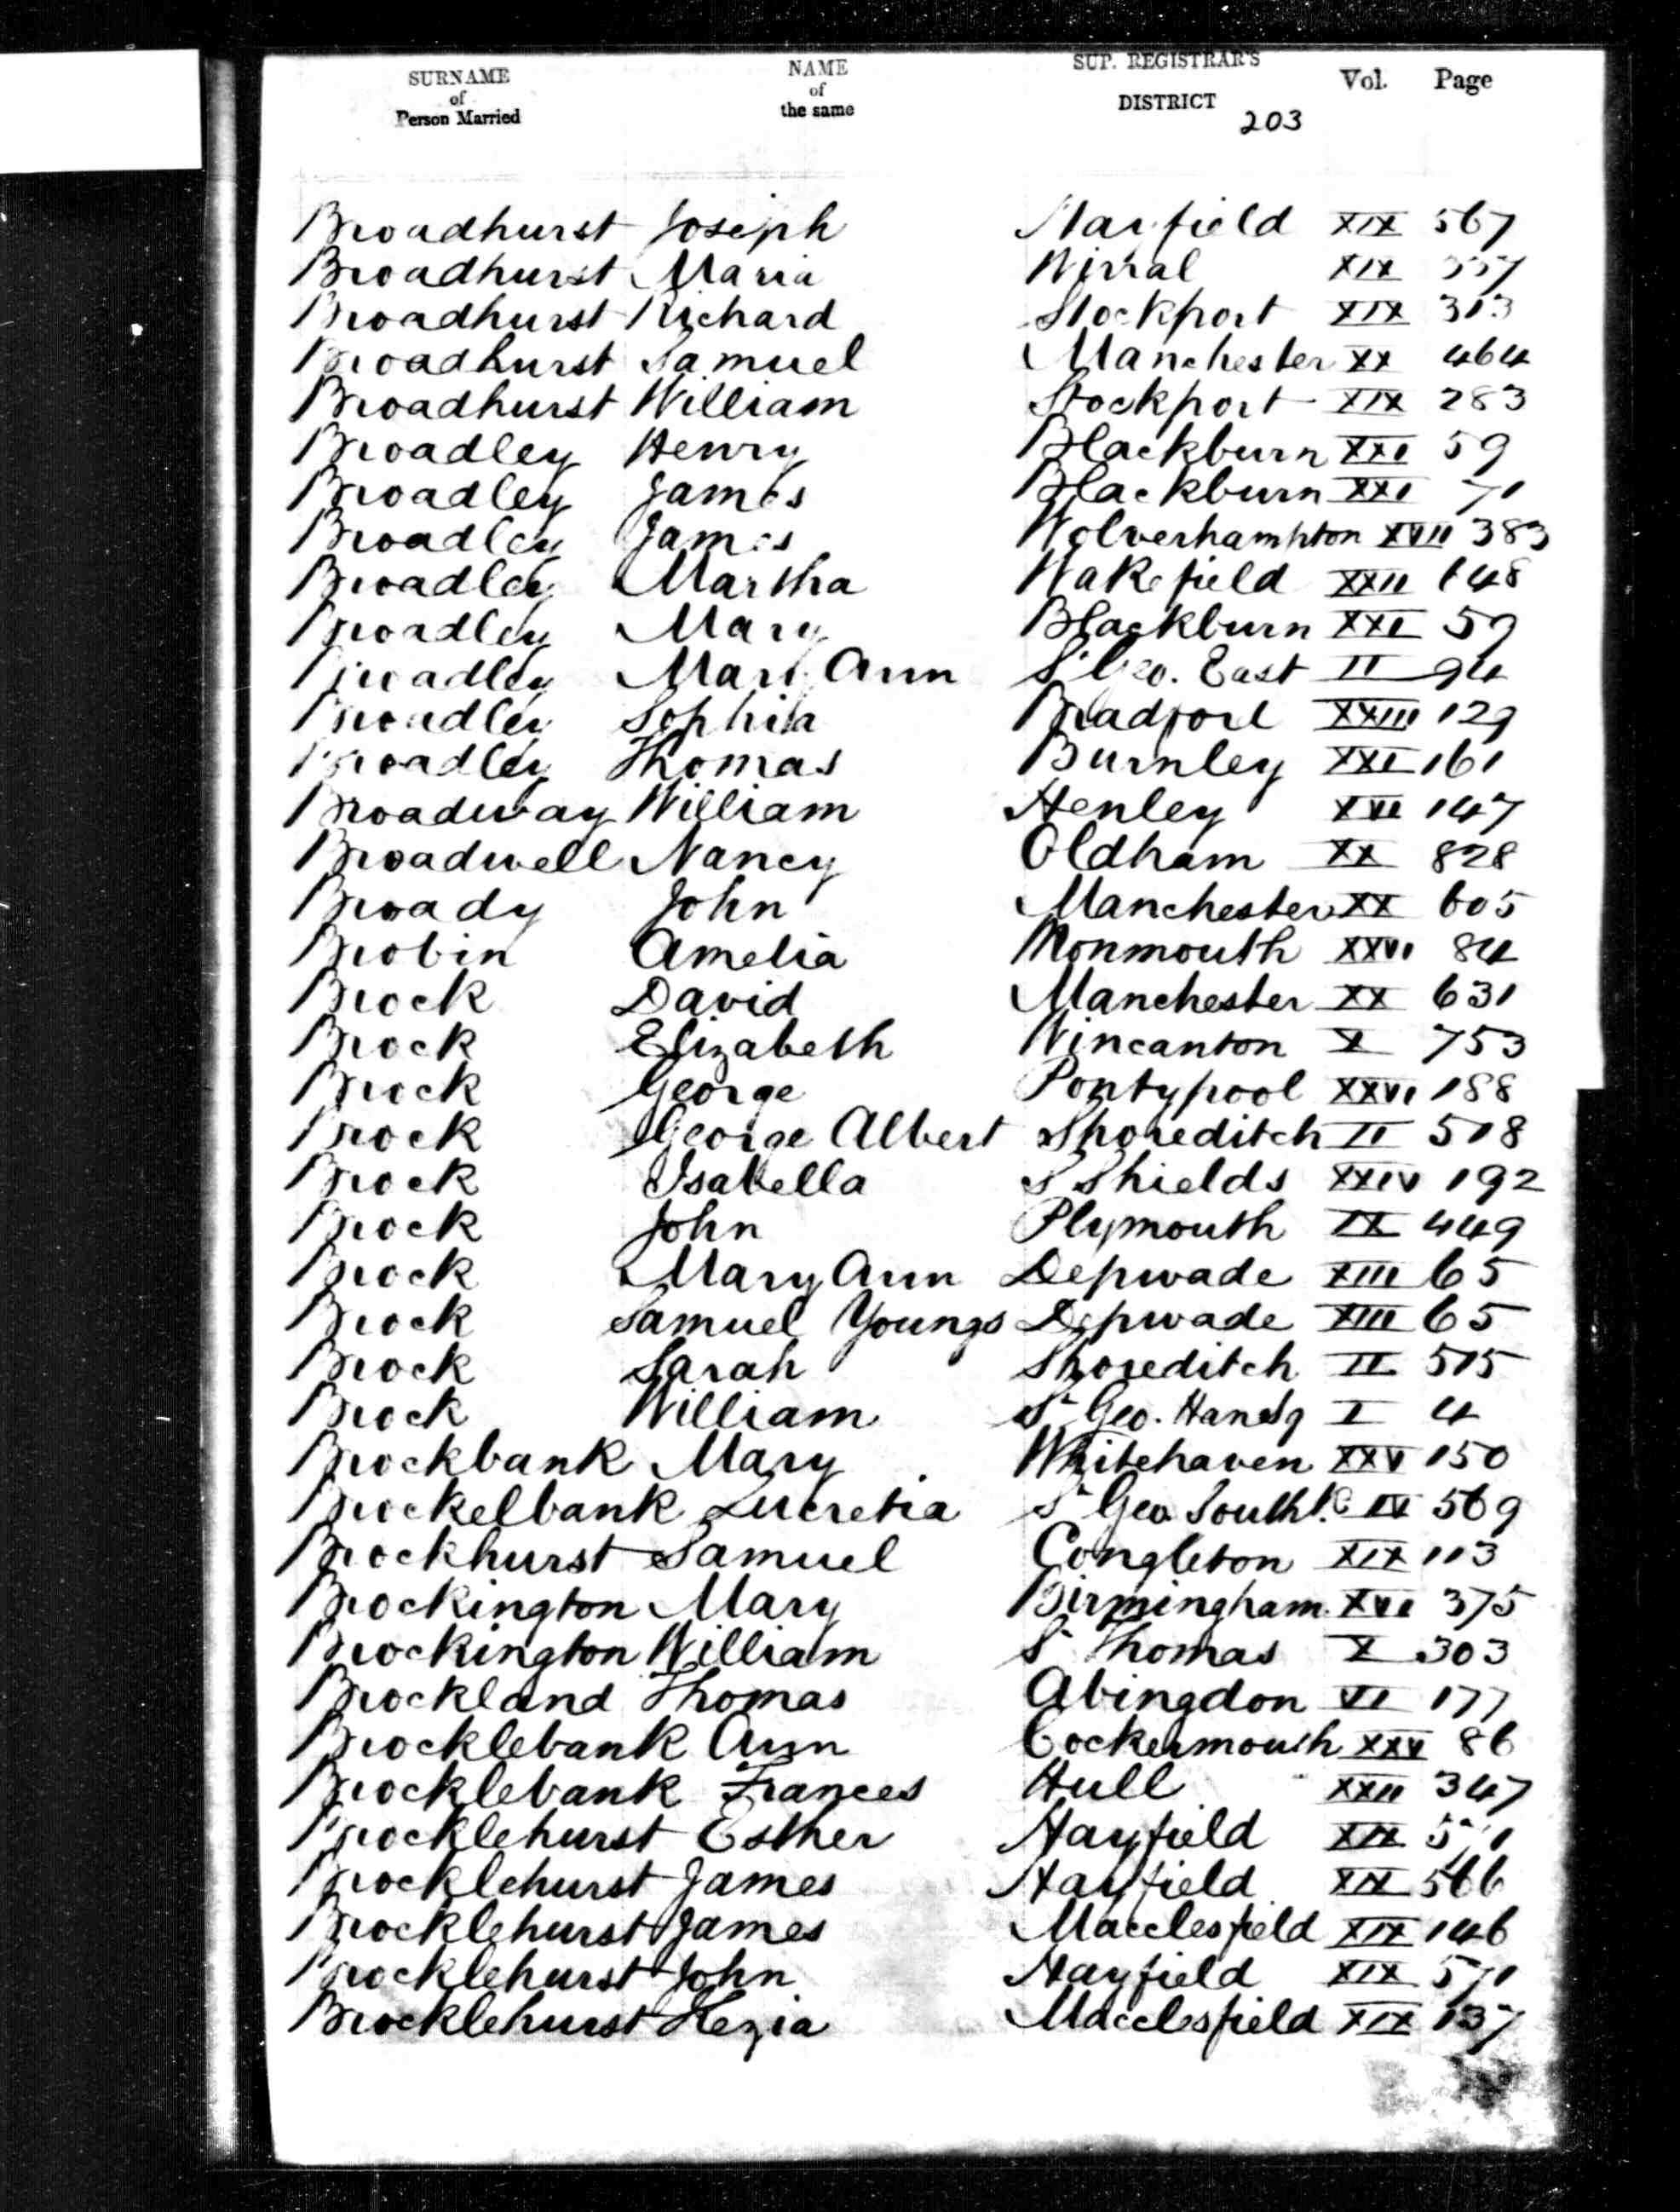 SURNAME of Person Married NAME of the same SUP. REGISTRAR'S DISTRICT Vol. Page
203
Broadhurst Joseph Hayfield XIX 567
Broadhurst Maria Wirral XIX
Broadhurst Richard Stockport XIX 313
Broadhurst Samuel Manchester XX 464
Broadhurst William Stockport XIX 283
Broadley Henry Blackburn XXI 59
Broadley James Blackburn XXI 71
Broadley James Wolverhampton XVII 383
Broadley Martha Wakefield XXII 148
Broadley Mary Blackburn XXI 59
Broadley Mary Ann St Geo. East II 94
Broadley Sophia Bradford XXIII 129
Broadley Thomas Burnley XXI 161
Broadway William Henley XVI 147
Broadwell Nancy Oldham XX 828
Broady John Manchester XX 605
Brobin Amelia Monmouth XXVI 84
Brock David Manchester XX 631
Brock Elizabeth Wincanton X 753
Brock George Pontypool XXVI 188
Brock George Albert Shoreditch II 518
Brock Isabella S Shields XXIV 192
Brock John Plymouth IX 449
Brock Mary Ann Depwade XIII 65
Brock Samuel Youngs Depwade XIII 65
Brock Sarah Shoreditch II 515
Brock William St Geo. Han Sq I 4
Brockbank Mary Whitehaven XXV 150
Brockelbank Lucretia St Geo Southk. IV 569
Brockhurst Samuel Congleton XIX 113
Brockington Mary Birmingham XVI 375
Brockington William St Thomas X 303
Brockland Thomas Abingdon VI 177
Brocklebank Ann Cockermouth XXV 86
Brocklebank Frances Hull XXII 347
Brocklehurst Esther Hayfield XIX 571
Brocklehurst James Hayfield XIX 566
Brocklehurst James Macclesfield XIX 146
Brocklehurst John Hayfield XIX 571
Brocklehurst Kezia Macclesfield XIX 137